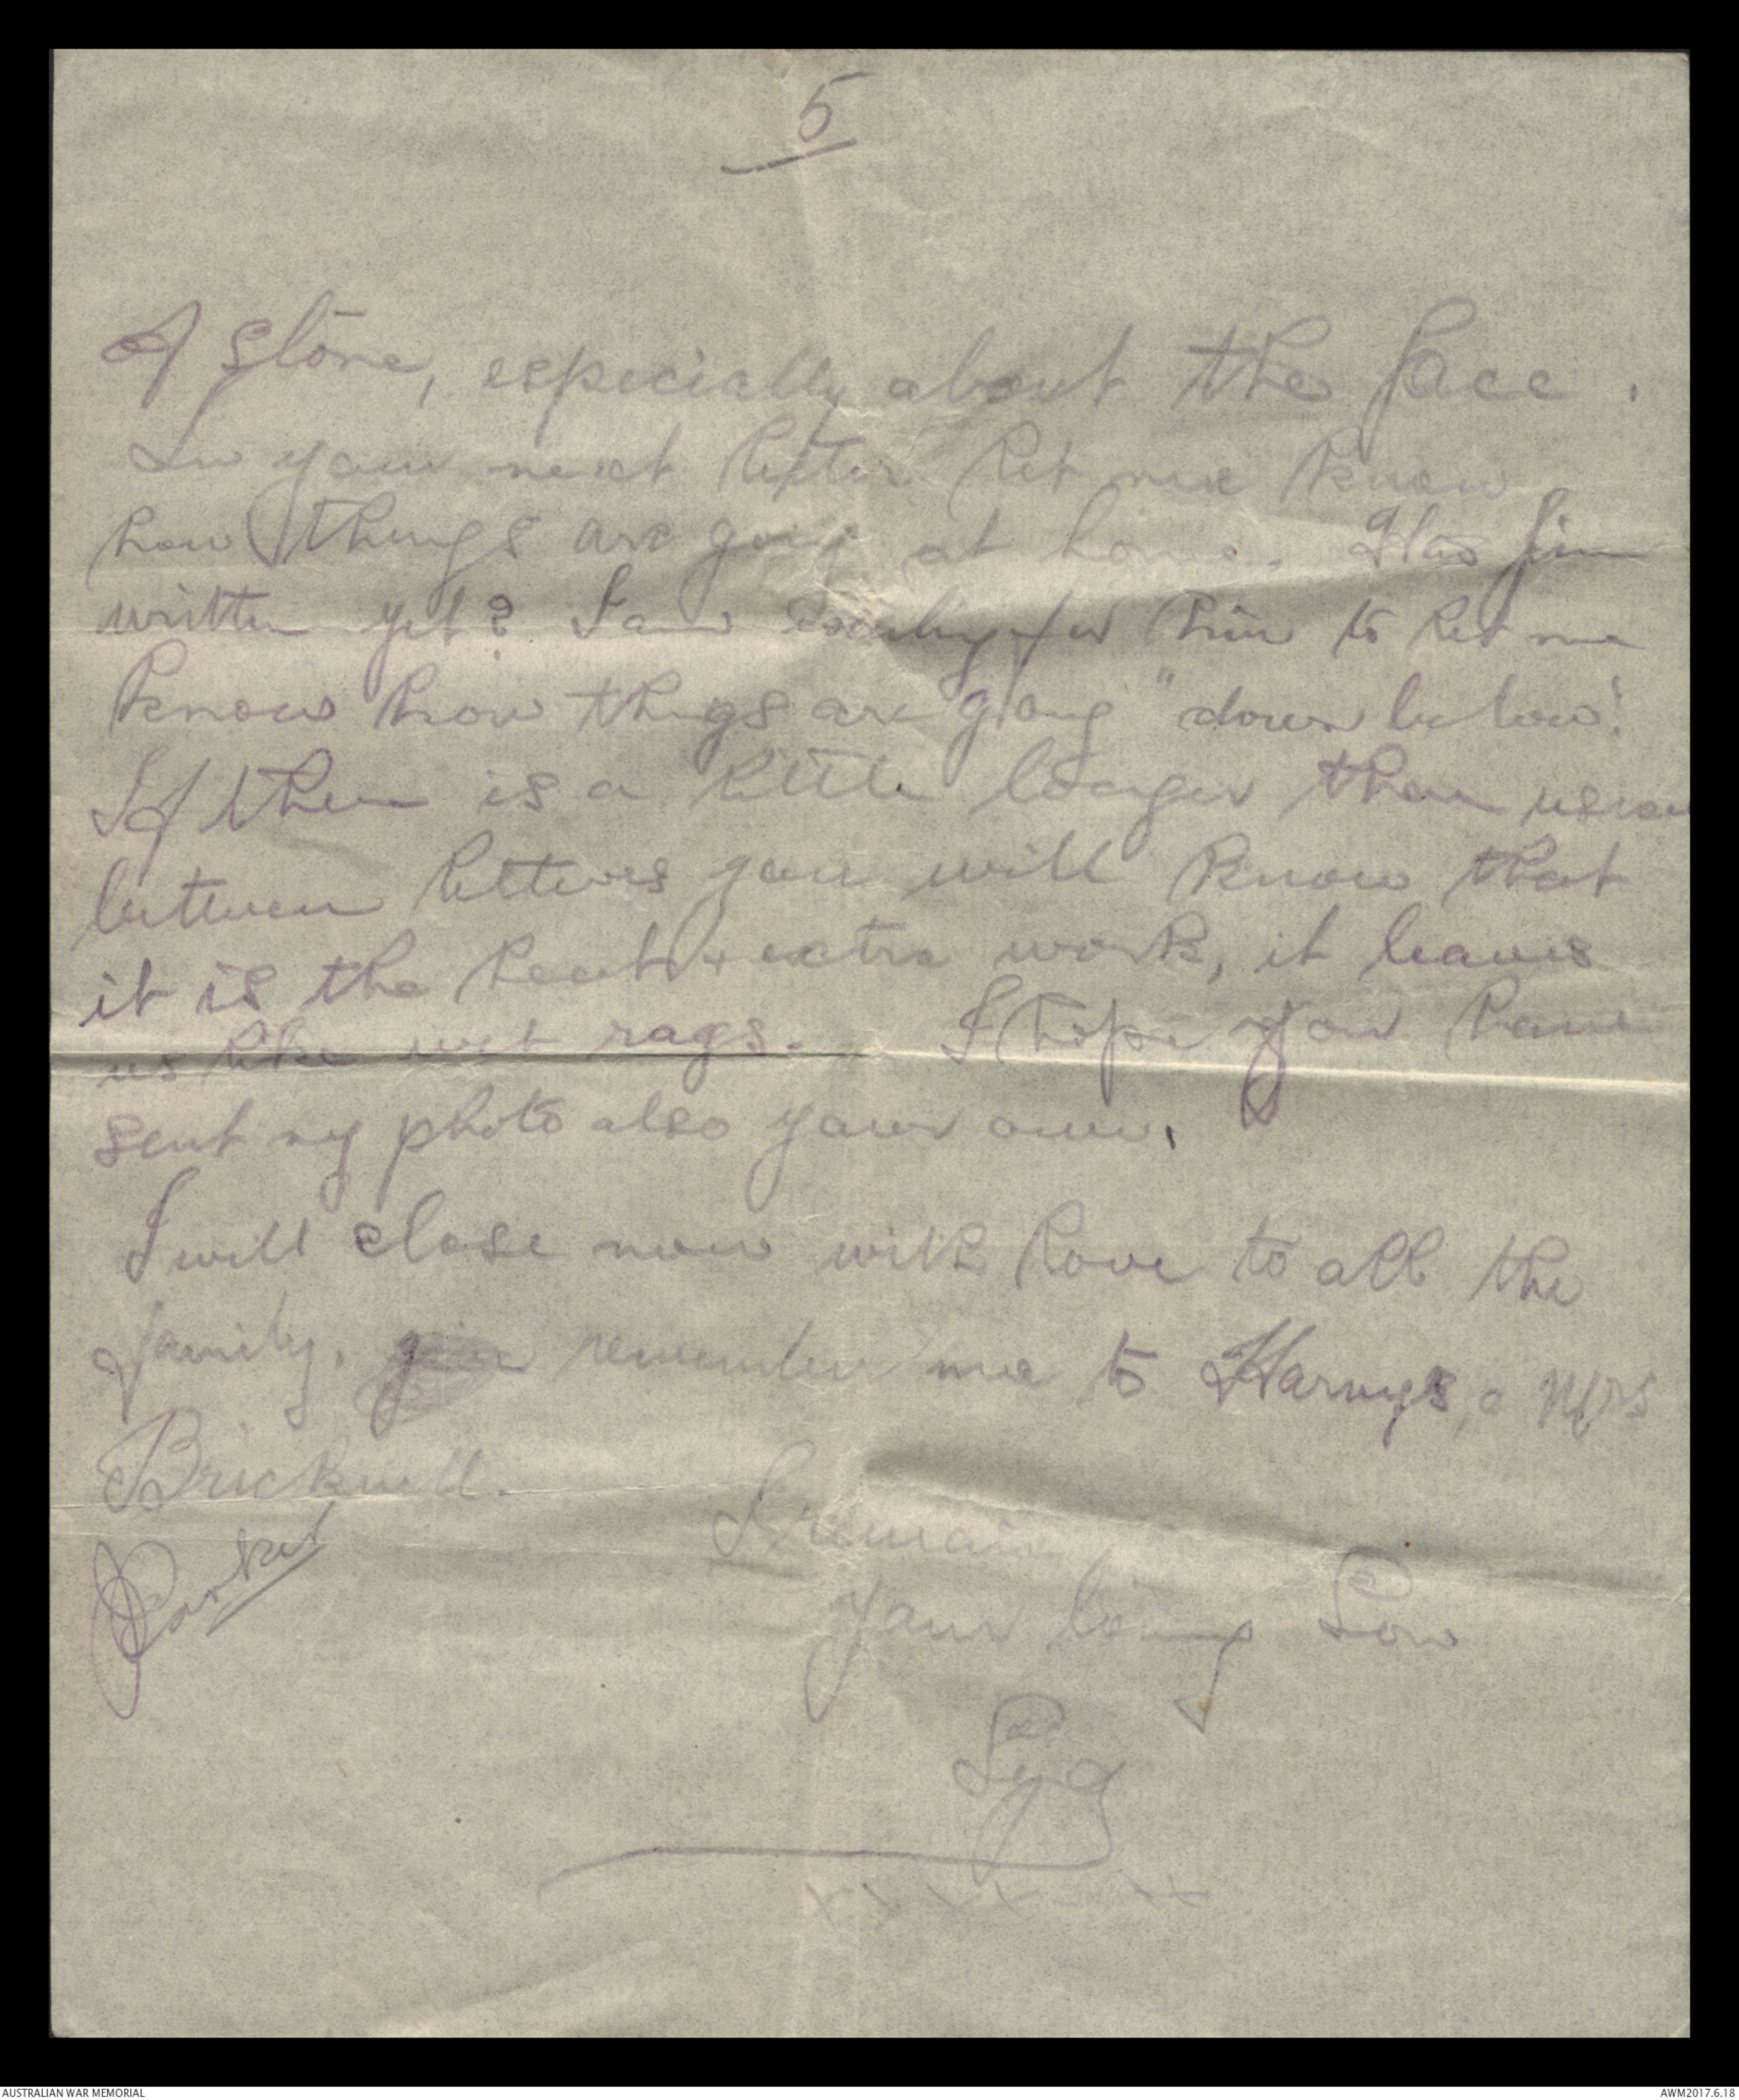 5
of stone, especially about the face.
In your next letter let me know
how things are going at home. Has Jim
written yet? I am for him to let me
know how things are going "down below"
If there is a little longer than usual
between letters you will know that
it is the heat & extra work, it leaves
us like wet rags. I hope you have
sent my photo also your own.
I will close now with love to all the
family, remember me to Harveys, & Mrs
Bricknell.
I remain
your loving Son
Syd
x x x x x x
AUSTRALIAN WAR MEMORIAL
AWM2017.6.18